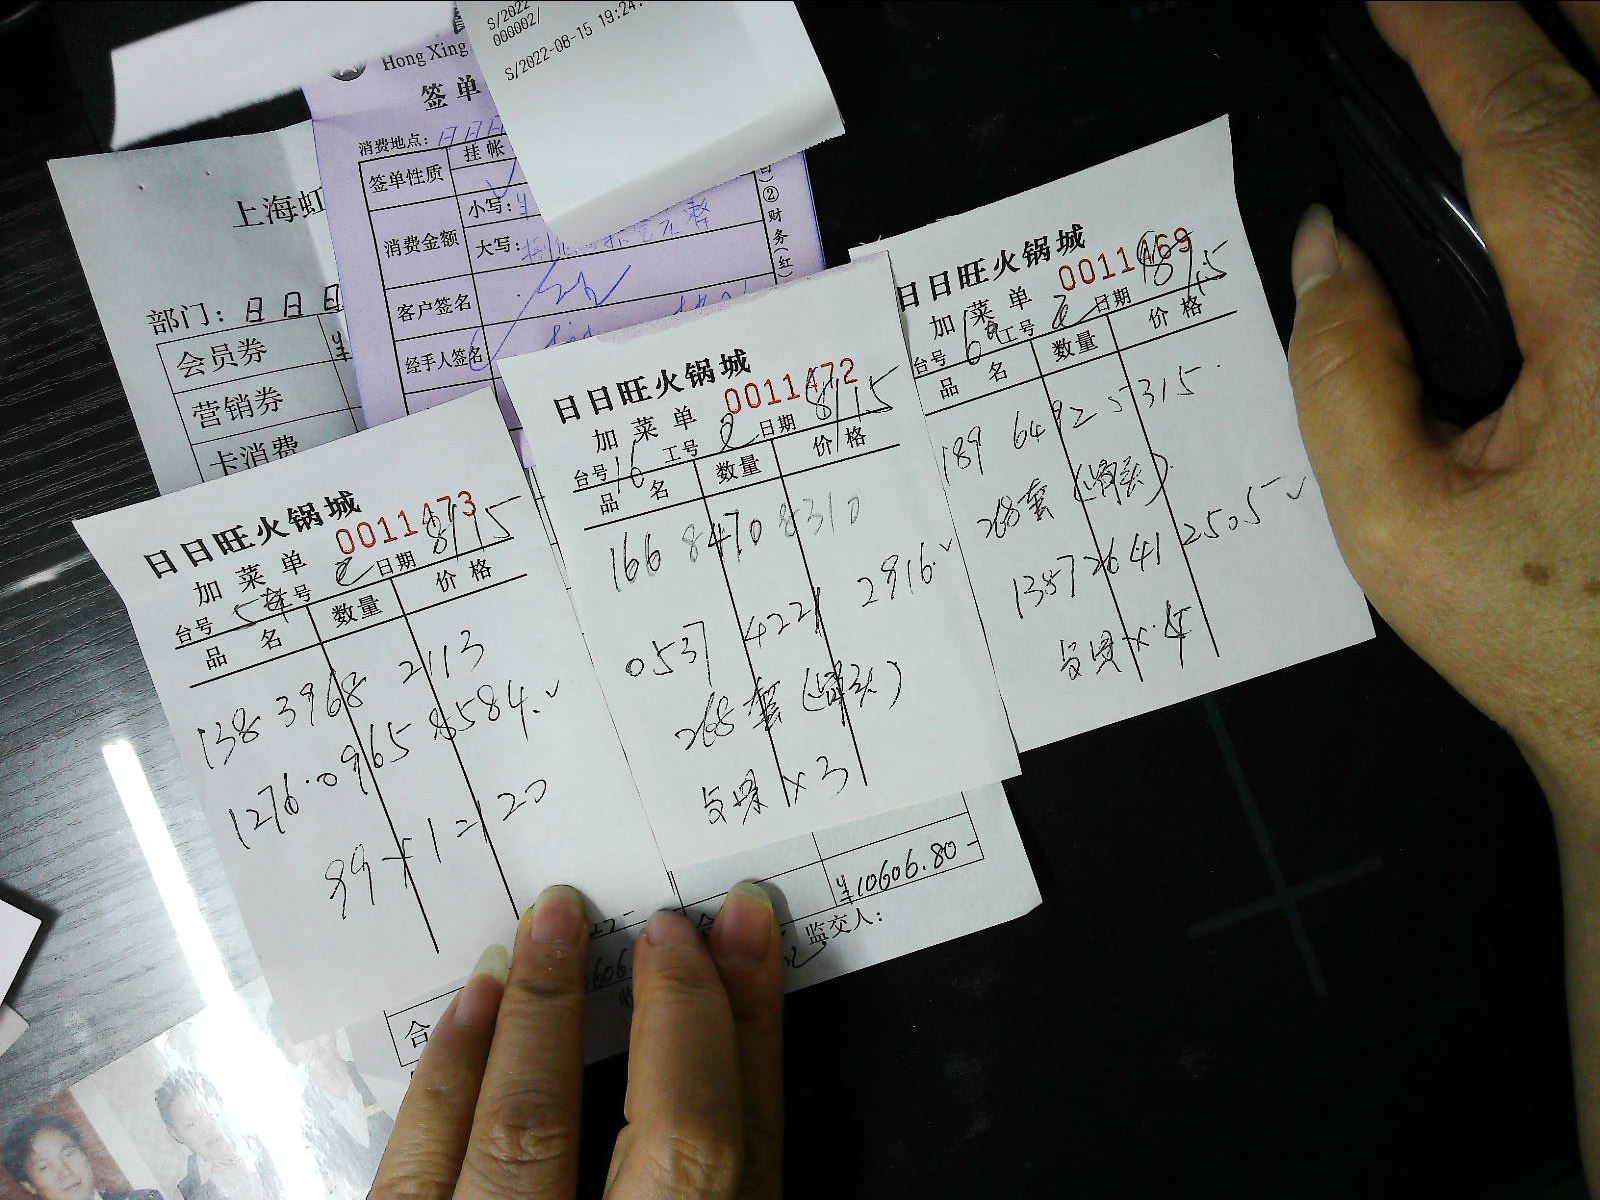 S/2022
000002/
S/2022-08-15 19:24:
Hong Xing
签单
消费地点：日日日
签单性质
挂帐
小写：
消费金额
大写：
客户签名
经手人签名
② 财务（红）
上海虹
部门：日日日
会员券
营销券
卡消费
日日旺火锅城
0011473
加菜单
台号 工号 2 日期 8/15
品名 数量 价格
138 3968 2113
1276.0965 8584.
日日旺火锅城
0011472
加菜单
台号 16 工号 2 日期 8/15
品名 数量 价格
166 8470 8310
0537 4221 2916.
268套（骨头）
×3
日日旺火锅城
0011469
加菜单
台号 工号 2 日期 8/15
品名 数量 价格
189 6492 5315.
268套（骨头）
1357 2641 2505
¥10606.80-
监交人：
合